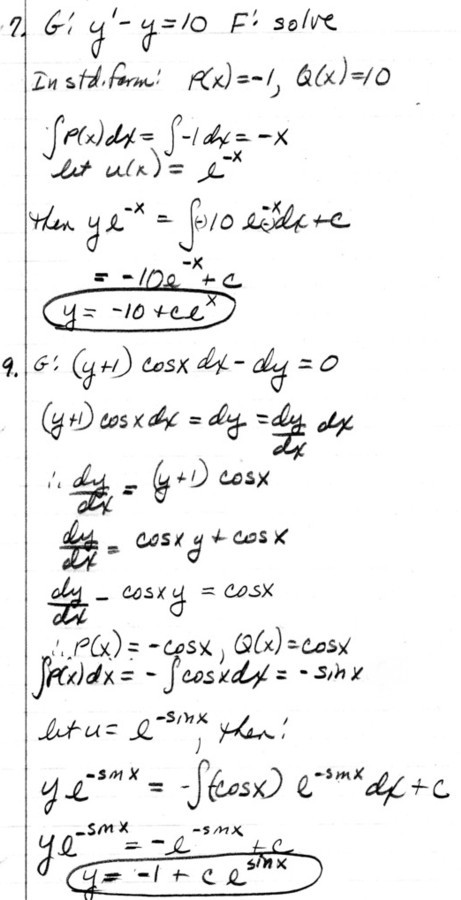 7. G: y' - y = 10 F: solve
In std. form: P(x) = -1, Q(x) = 10
∫P(x)dx = ∫-1dx = -x
let u(x) = e^-x
then ye^-x = ∫(-)10 e(-)^-x dx + c
= -10e^-x + c
y = -10 + ce^x
9. G: (y+1) cosx dx - dy = 0
(y+1) cosx dx = dy = dy/dx dx
∴ dy/dx = (y+1) cosx
dy/dx = cosx y + cosx
dy/dx - cosx y = cosx
∴ P(x) = -cosx, Q(x) = cosx
∫P(x)dx = -∫cosxdx = -sinx
let u = e^-sinx, then:
ye^-sinx = -∫(-cosx) e^-sinx dx + c
ye^-sinx = -e^-sinx + c
y = -1 + c e^sinx